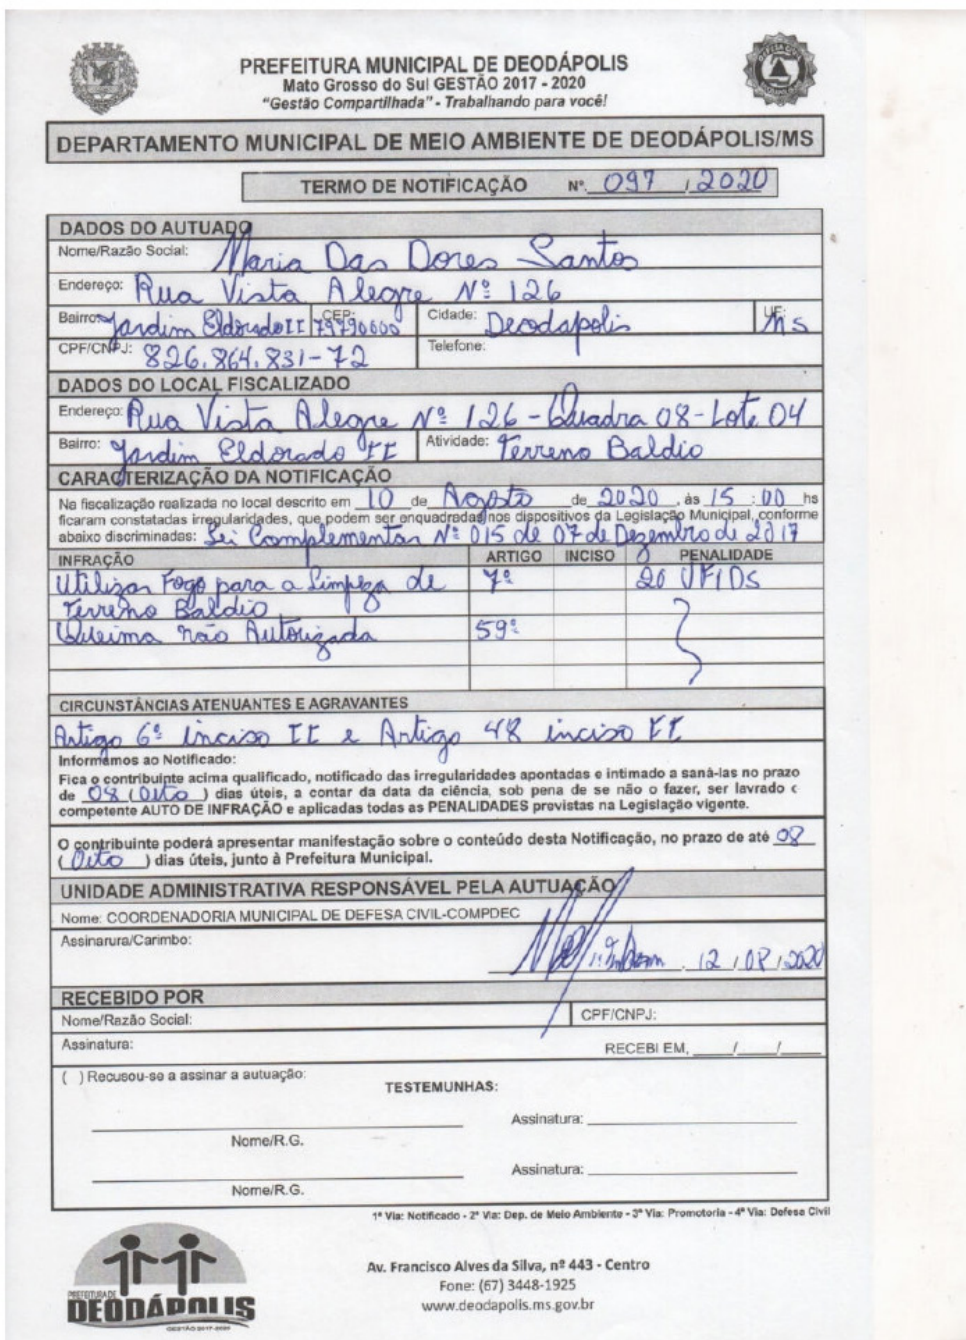 PREFEITURA MUNICIPAL DE DEODÁPOLIS
Mato Grosso do Sul GESTÃO 2017 - 2020
"Gestão Compartilhada" - Trabalhando para você!
DEPARTAMENTO MUNICIPAL DE MEIO AMBIENTE DE DEODÁPOLIS/MS
TERMO DE NOTIFICAÇÃO Nº. 097 / 2020
DADOS DO AUTUADO
Nome/Razão Social: Maria Das Dores Santos
Endereço: Rua Vista Alegre Nº 126
Bairro: Jardim Eldorado II CEP: 79790000 Cidade: Deodapolis UF: MS
CPF/CNPJ: 826.864.831-72 Telefone:
DADOS DO LOCAL FISCALIZADO
Endereço: Rua Vista Alegre Nº 126 - Quadra 08 - Lote 04
Bairro: Jardim Eldorado II Atividade: Terreno Baldio
CARACTERIZAÇÃO DA NOTIFICAÇÃO
Na fiscalização realizada no local descrito em 10 de Agosto de 2020, às 15 : 00 hs
ficaram constatadas irregularidades, que podem ser enquadradas nos dispositivos da Legislação Municipal, conforme
abaixo discriminadas: Lei Complementar Nº 015 de 07 de Dezembro de 2017
INFRAÇÃO ARTIGO INCISO PENALIDADE
Utilizar Fogo para a Limpeza de 7º 20 UFIDs
Terreno Baldio
Queima não Autorizada 59º
CIRCUNSTÂNCIAS ATENUANTES E AGRAVANTES
Artigo 6º inciso II e Artigo 48 inciso II
Informamos ao Notificado:
Fica o contribuinte acima qualificado, notificado das irregularidades apontadas e intimado a saná-las no prazo
de 08 (Oito) dias úteis, a contar da data da ciência, sob pena de se não o fazer, ser lavrado c
competente AUTO DE INFRAÇÃO e aplicadas todas as PENALIDADES previstas na Legislação vigente.
O contribuinte poderá apresentar manifestação sobre o conteúdo desta Notificação, no prazo de até 08
(Oito) dias úteis, junto à Prefeitura Municipal.
UNIDADE ADMINISTRATIVA RESPONSÁVEL PELA AUTUAÇÃO
Nome: COORDENADORIA MUNICIPAL DE DEFESA CIVIL-COMPDEC
Assinarura/Carimbo: 12 / 08 / 2020
RECEBIDO POR
Nome/Razão Social: CPF/CNPJ:
Assinatura: RECEBI EM, ____/____/____
( ) Recusou-se a assinar a autuação:
TESTEMUNHAS:
Assinatura:
Nome/R.G.
Assinatura:
Nome/R.G.
1ª Via: Notificado - 2ª Via: Dep. de Meio Ambiente - 3ª Via: Promotoria - 4ª Via: Defesa Civil
PREFEITURA DE
DEODÁPOLIS
GESTÃO 2017-2020
Av. Francisco Alves da Silva, nº 443 - Centro
Fone: (67) 3448-1925
www.deodapolis.ms.gov.br